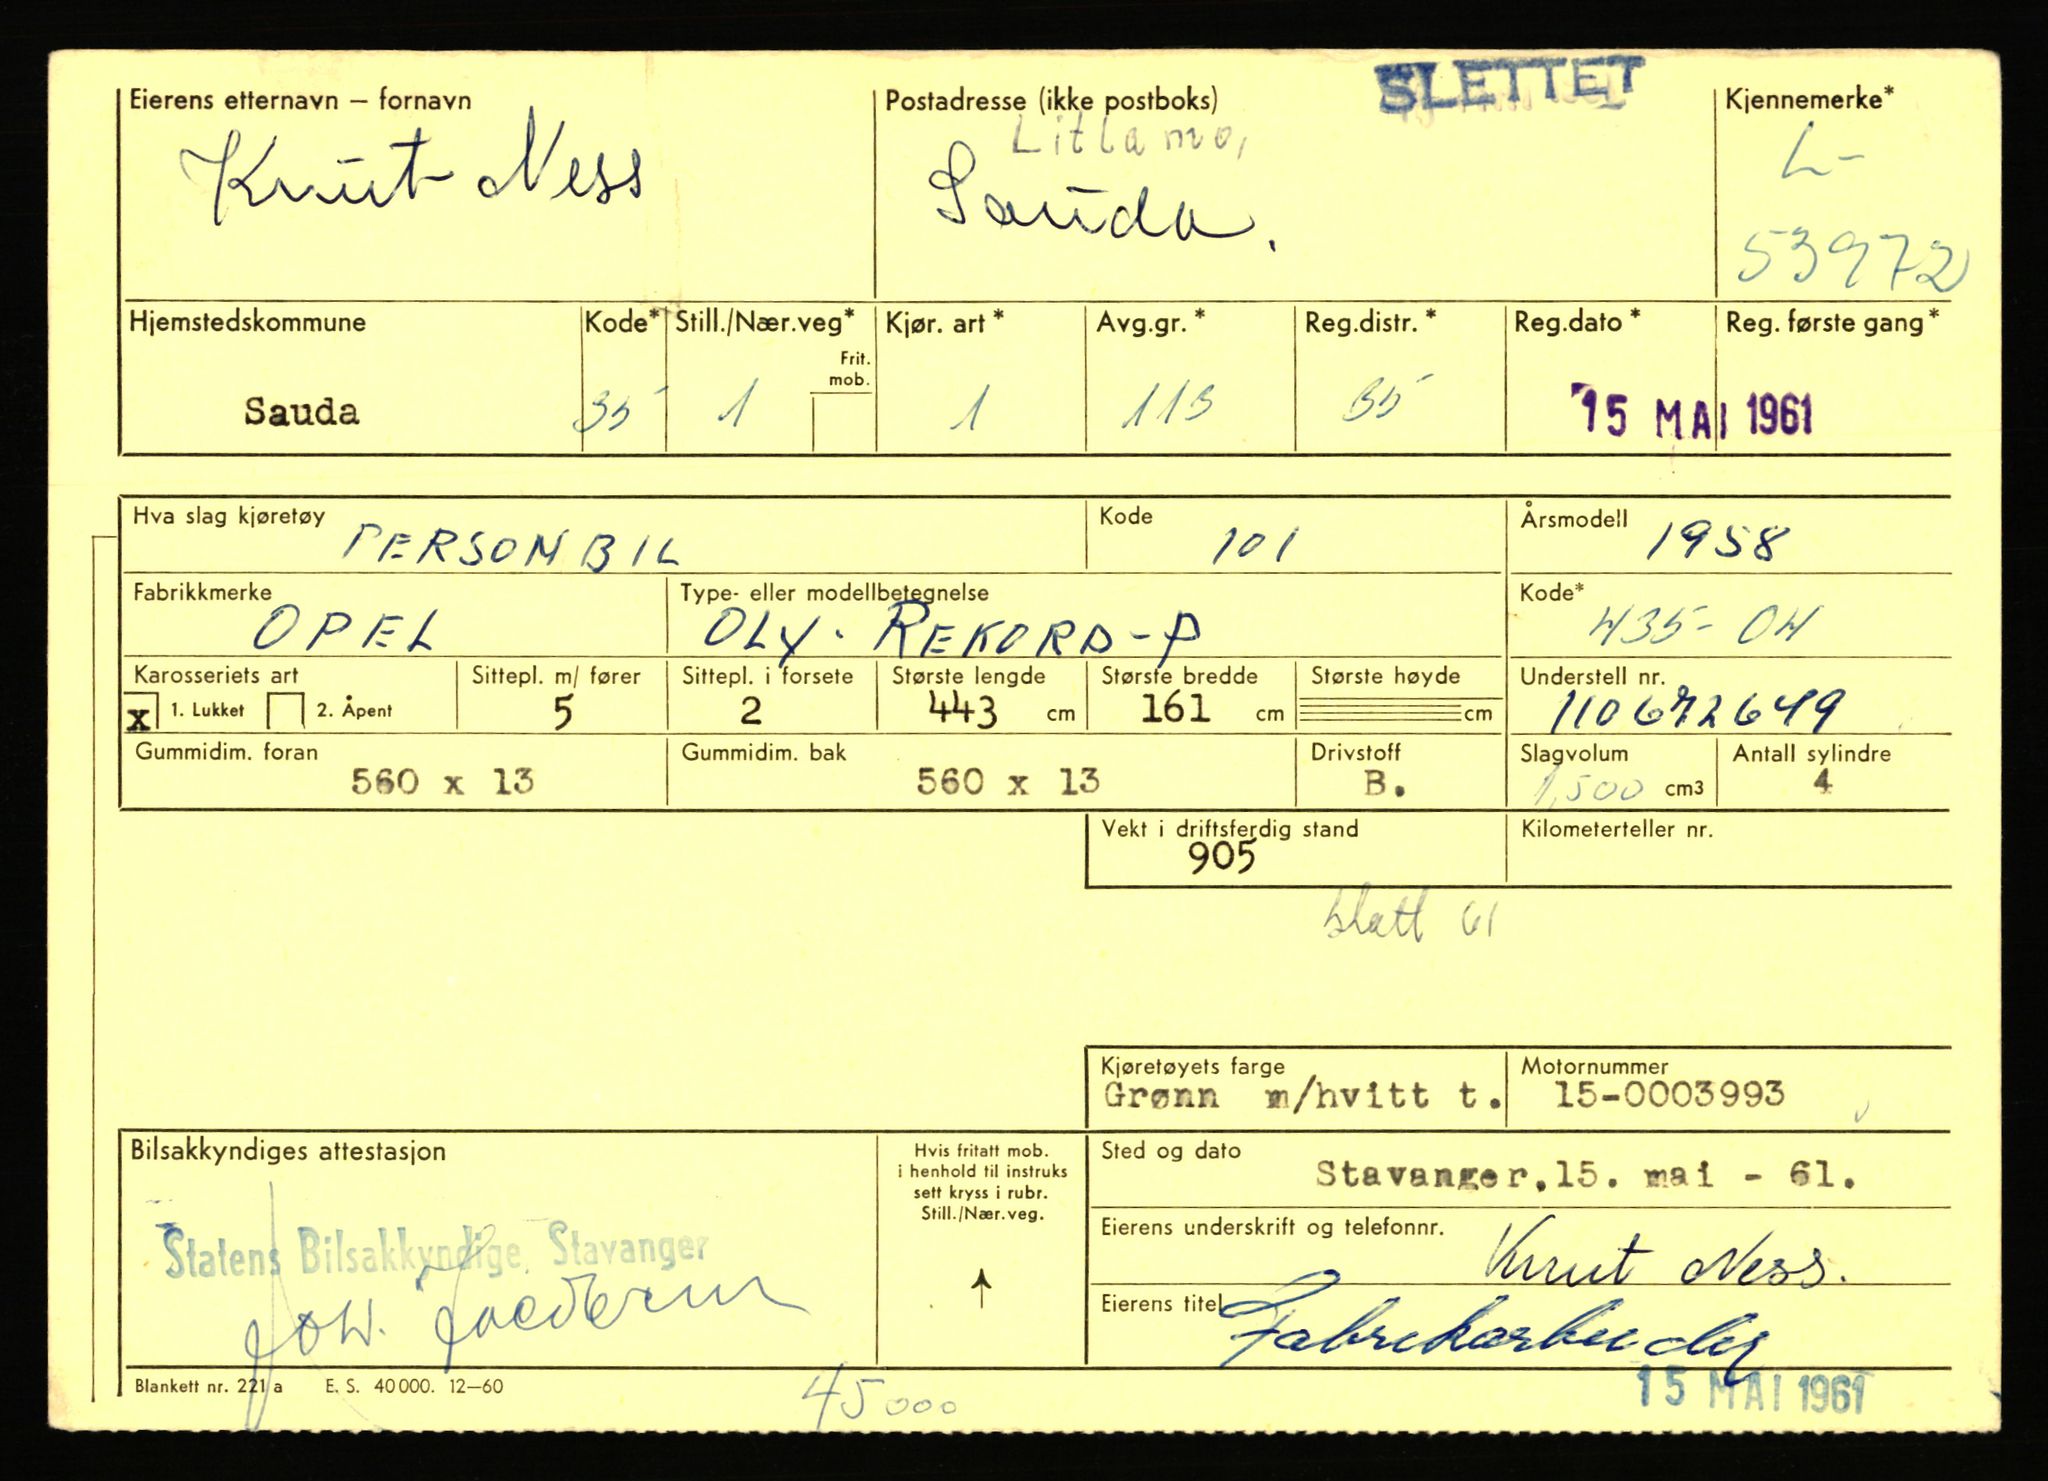 SLETTET
Eierens etternavn – fornavn
Postadresse (ikke postboks)
Kjennemerke*
Knut Ness
Litlamo,
Sauda.
L-
53972
Hjemstedskommune
Kode*
Still./Nær.veg*
Kjør. art *
Avg.gr. *
Reg.distr. *
Reg.dato *
Reg. første gang *
Frit.
mob.
Sauda
35
1
1
113
35
15 MAI 1961
Hva slag kjøretøy
PERSONBIL
Kode
101
Årsmodell
1958
Fabrikkmerke
OPEL
Type- eller modellbetegnelse
OLY. REKORD-P
Kode*
435-04
Karosseriets art
x 1. Lukket 2. Åpent
Sittepl. m/ fører
5
Sittepl. i forsete
2
Største lengde
443 cm
Største bredde
161 cm
Største høyde
cm
Understell nr.
110672649
Gummidim. foran
560 x 13
Gummidim. bak
560 x 13
Drivstoff
B.
Slagvolum
1,500 cm3
Antall sylindre
4
Vekt i driftsferdig stand
905
Kilometerteller nr.
blatt 61
Kjøretøyets farge
Grønn m/hvitt t.
Motornummer
15-0003993
Bilsakkyndiges attestasjon
Statens Bilsakkyndige, Stavanger
Hvis fritatt mob.
i henhold til instruks
sett kryss i rubr.
Still./Nær.veg.
Sted og dato
Stavanger,15. mai - 61.
Eierens underskrift og telefonnr.
Knut Ness.
Eierens titel
Fabrikkarbeider
Blankett nr. 221 a E. S. 40 000. 12–60
45000
15 MAI 1961